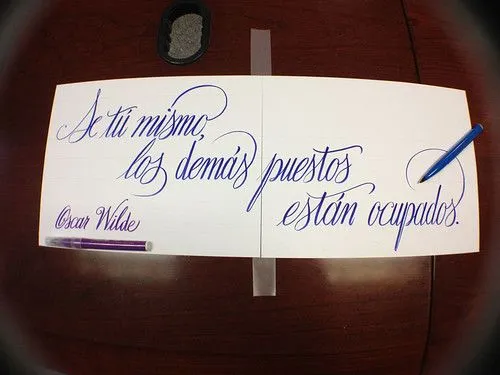 Se tú mismo,
los demás puestos
están ocupados.
Oscar Wilde